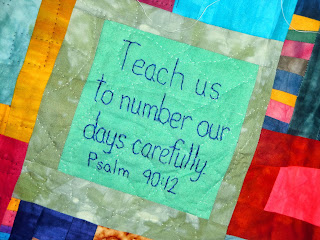 Teach us
to number our
days carefully.
Psalm 90:12